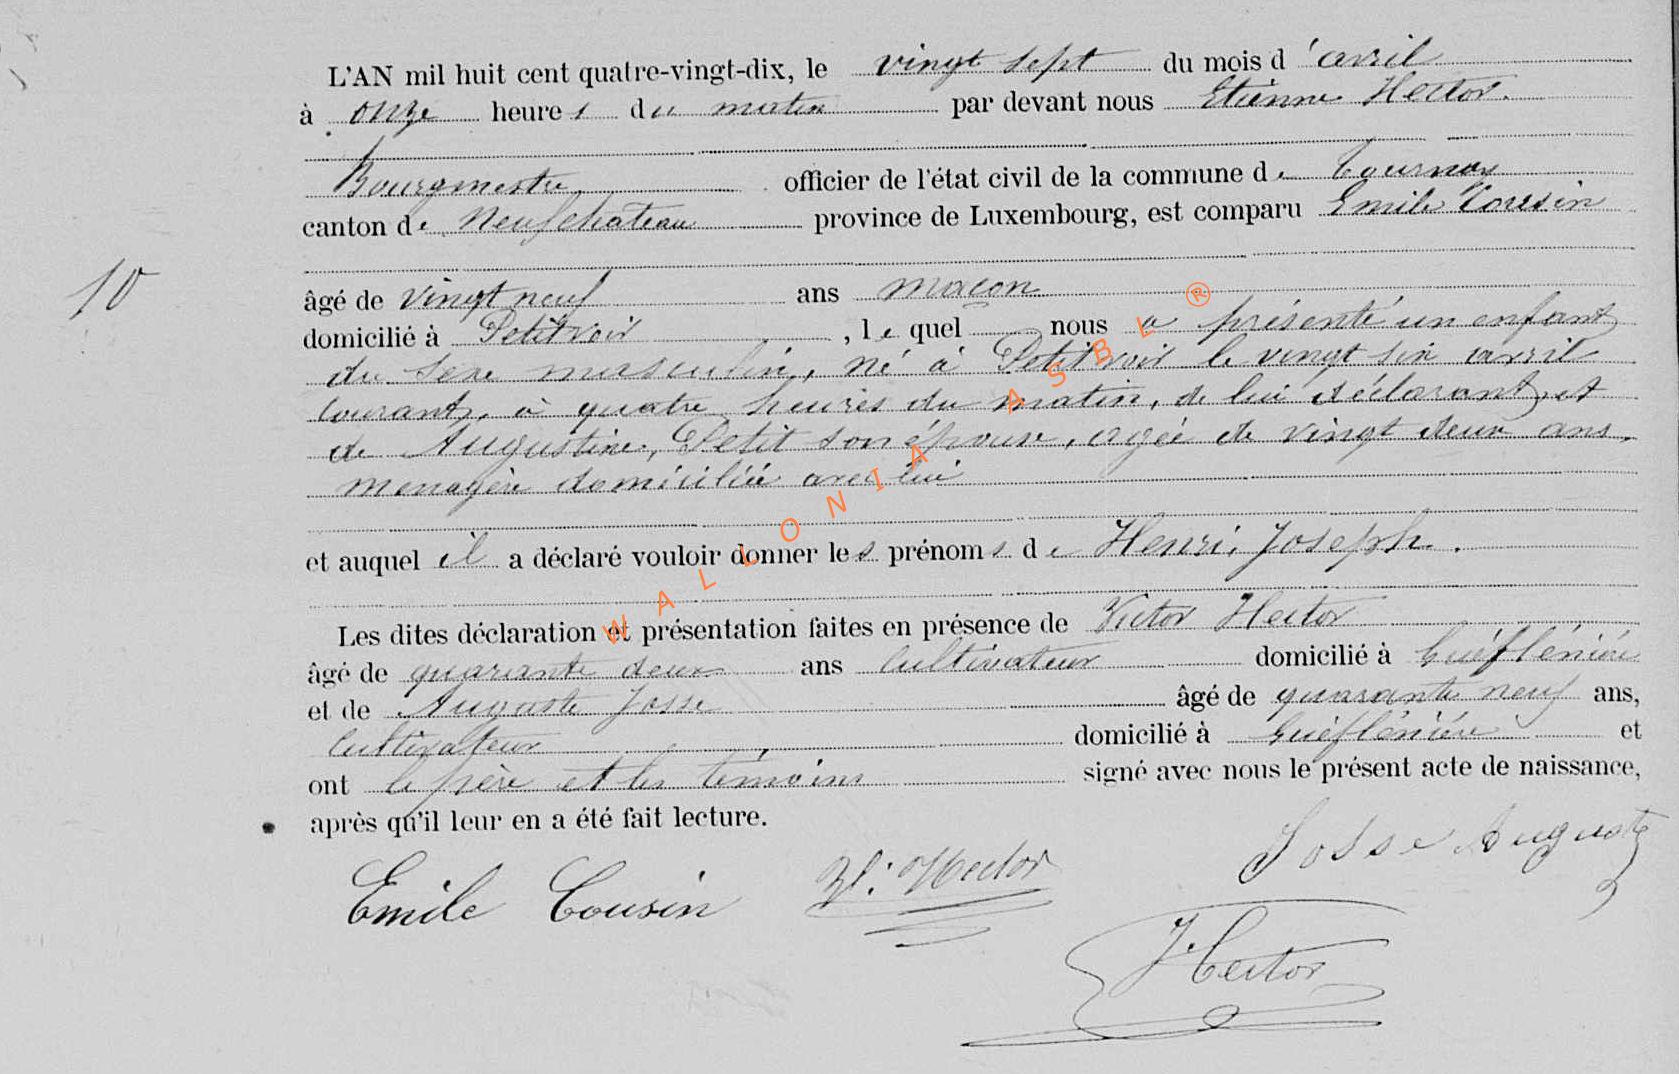 L'AN mil huit cent quatre-vingt-dix, le vingt sept du mois d'avril
à onze heures du matin par devant nous Etienne Hector.
Bourgmestre officier de l'état civil de la commune de Tournay
canton de Neufchateau province de Luxembourg, est comparu Emile Cousin
10
âgé de vingt neuf ans maçon
domicilié à Petitvoir, lequel nous a présenté un enfant
du sexe masculin, né à Petitvoir le vingt six avril
courant, à quatre heures du matin, de lui déclarant, et
de Augustine, Petit son épouse, agée de vingt deux ans,
menagère domiciliée avec lui
et auquel il a déclaré vouloir donner les prénoms de Henri, Joseph.
Les dites déclaration et présentation faites en présence de Victor Hector
âgé de quarante deux ans cultivateur domicilié à
et de Auguste Josse âgé de quarante neuf ans,
cultivateur, domicilié à et
ont le père et les témoins signé avec nous le présent acte de naissance,
après qu'il leur en a été fait lecture.
Josse Auguste
Emile Cousin Vr. Hector
Hector
WALLONIA ASBL®